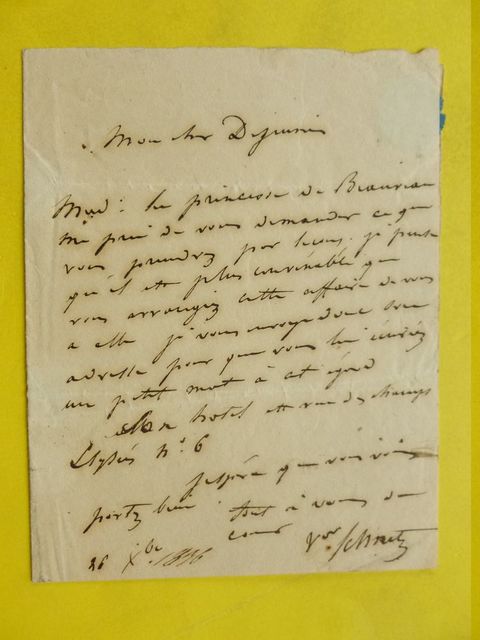 Mon cher Dejuinne
Mad: la princesse de Beauveau
me prie de vous demander ce que
vous prendrez par leçons. je pense
qu'il est plus convenable que
vous arrangiez cette affaire de vous
a elle je vous envoye donc son
adresse pour que vous lui écriviez
un petit mot à cet égard
son hotel est rue des champs
Elysées n° 6
J'espère que vous vous
portez bien tout à vous de
coeur Vor Schnetz
26 Xbre 1836